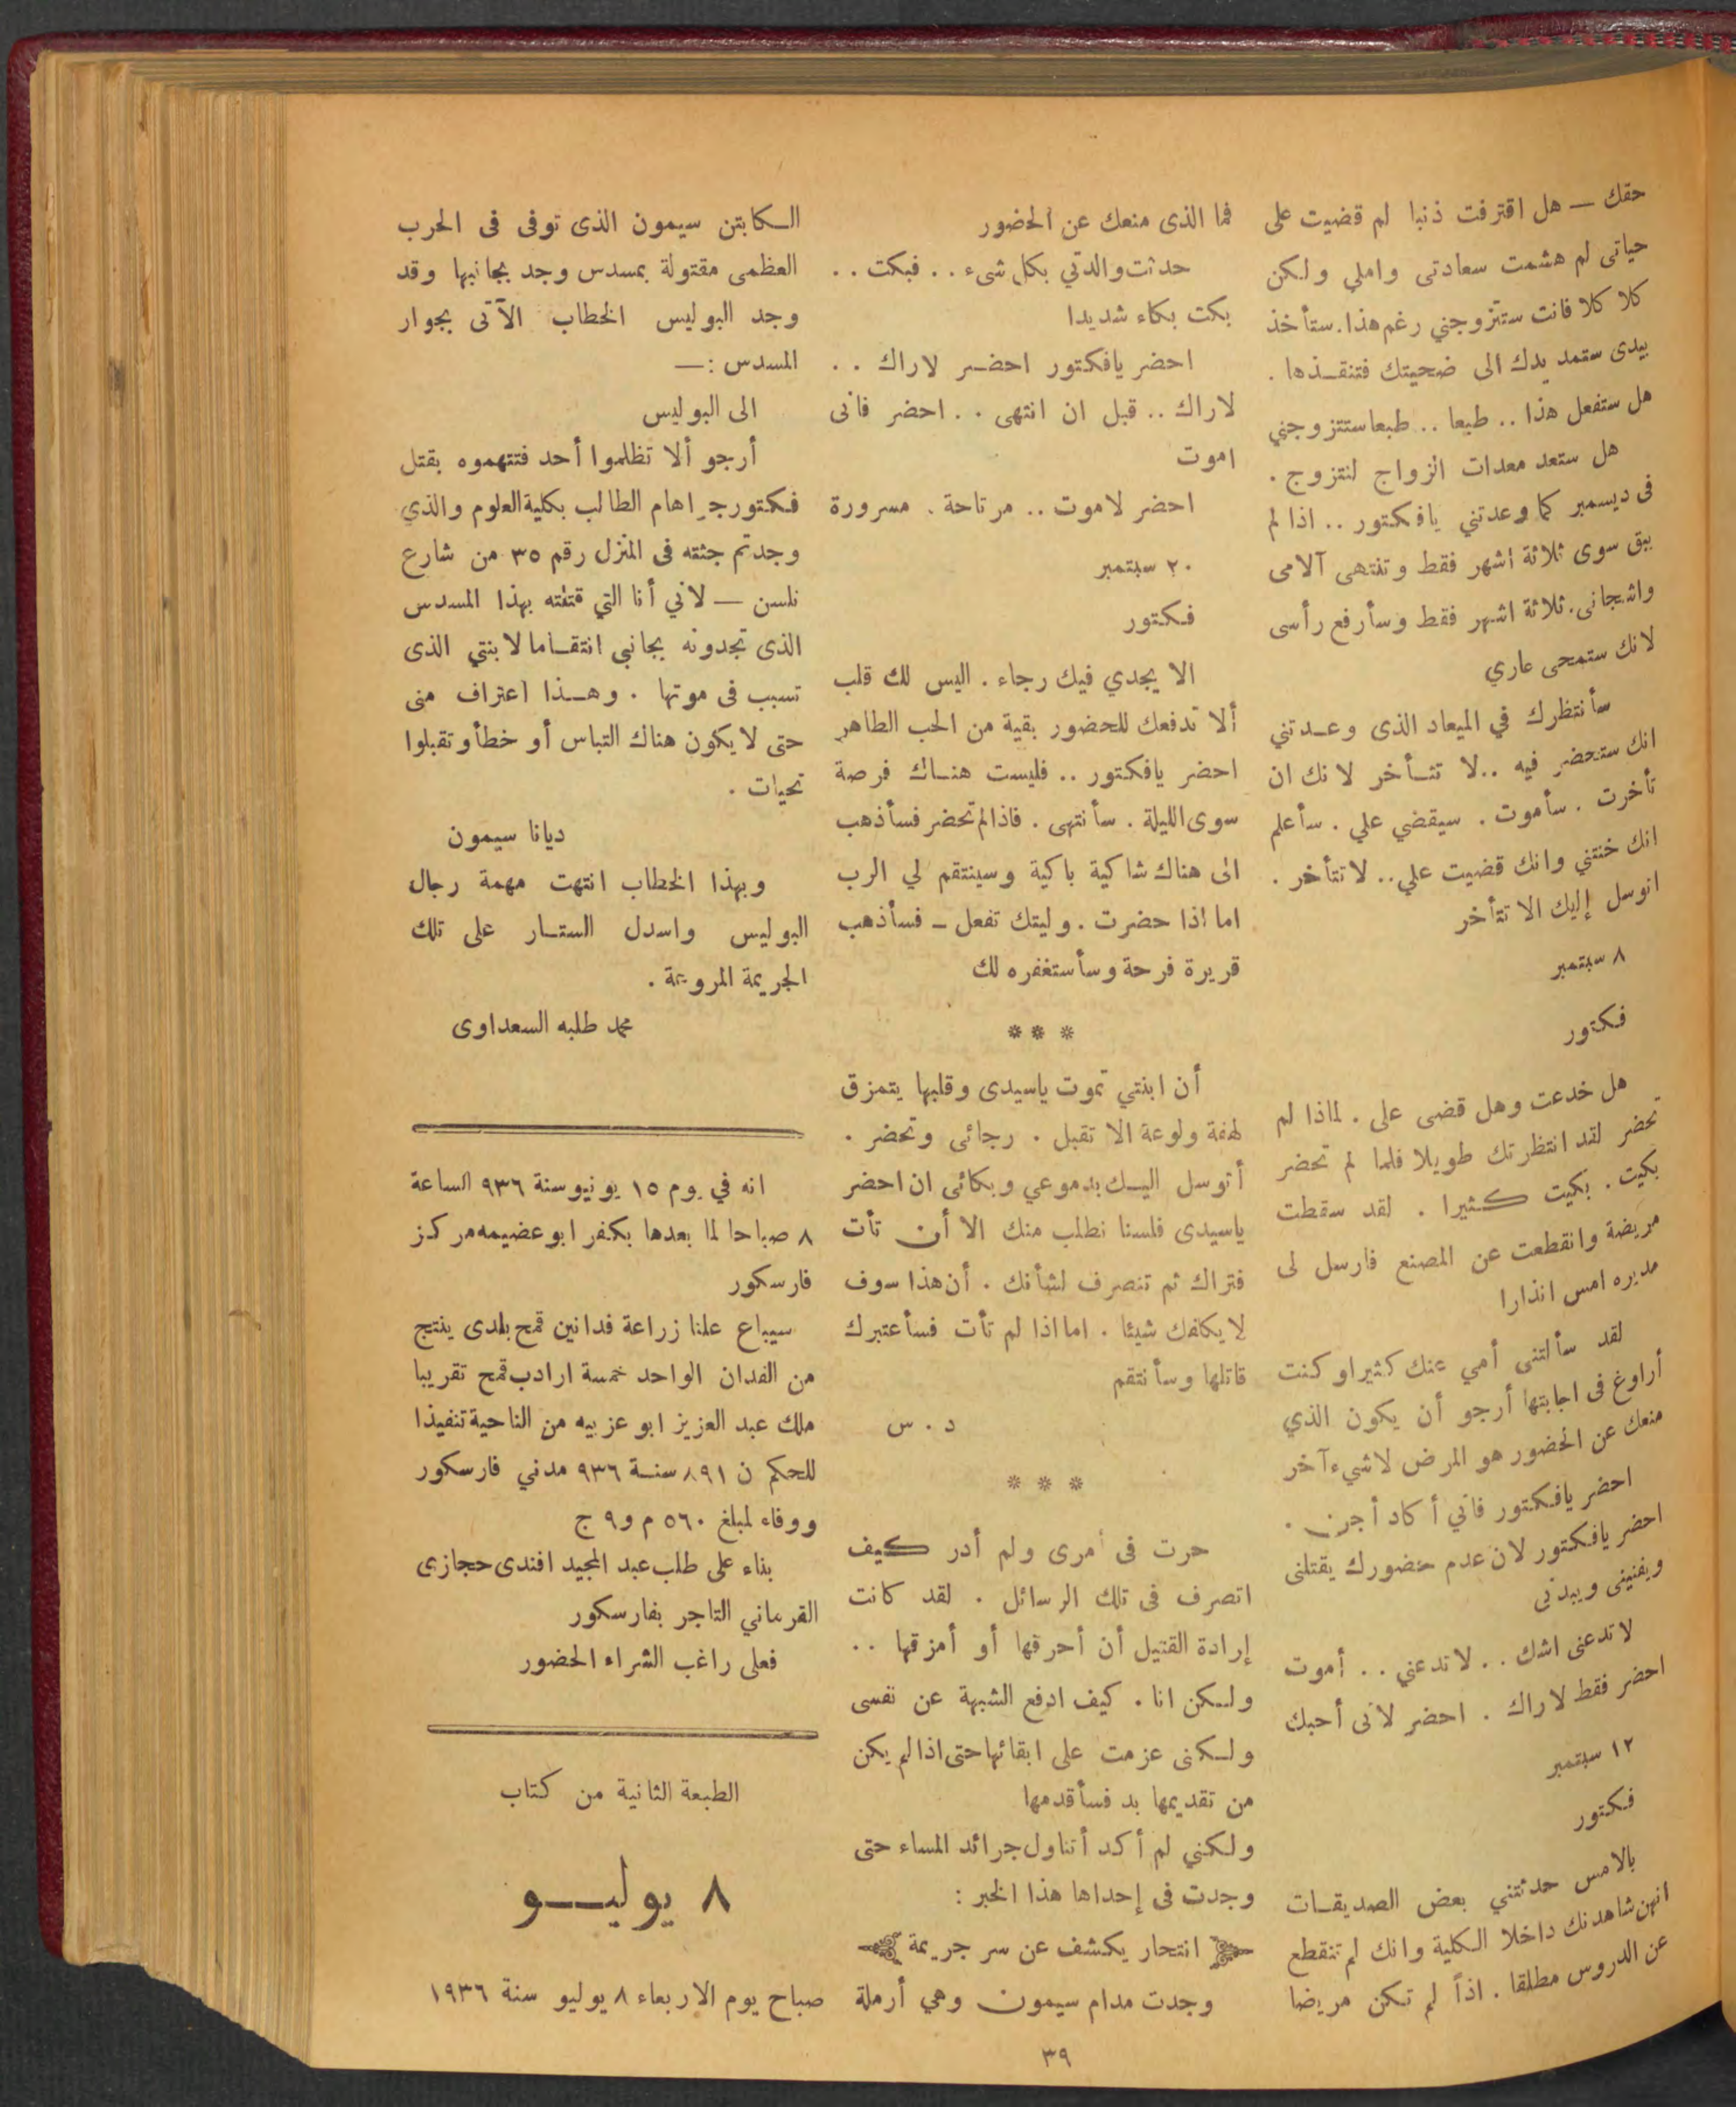 حقك — هل اقترفت ذنبا لم قضيت على
حياتى لم هشمت سعادتى واملي ولكن
كلا كلا فانت ستتزوجني رغم هذا. ستأخذ
بيدى ستمد يدك الى ضحيتك فتنقذها .
هل ستفعل هذا .. طبعا .. طبعا ستتزوجني
هل ستعد معدات الزواج لنتزوج .
فى ديسمبر كما وعدتني يافكتور .. اذا لم
يبق سوى ثلاثة اشهر فقط وتنتهى آلامى
واشجانى . ثلاثة اشهر فقط وسأرفع رأسى
لانك ستمحى عاري
سأنتظرك في الميعاد الذى وعدتني
انك ستحضر فيه .. لا تتأخر لانك ان
تأخرت . سأموت . سيقضي علي . سأعلم
انك خنتني وانك قضيت علي .. لا تتأخر .
اتوسل إليك الا تتأخر
٨ سبتمبر
فكتور
هل خدعت وهل قضى على . لماذا لم
تحضر لقد انتظرتك طويلا فلما لم تحضر
بكيت . بكيت كثيرا . لقد سقطت
مريضة وانقطعت عن المصنع فارسل لى
مديره امس انذارا
لقد سألتنى أمي عنك كثيرا وكنت
أراوغ فى اجابتها أرجو أن يكون الذي
منعك عن الحضور هو المرض لاشيء آخر
احضر يافكتور فاني أكاد أجن .
احضر يافكتور لان عدم حضورك يقتلنى
ويفنينى ويبدنى
لا تدعنى اشك .. لا تدعني .. أموت
احضر فقط لاراك . احضر لانى أحبك
١٢ سبتمبر
فكتور
بالامس حدثتني بعض الصديقات
انهن شاهدنك داخلا الكلية وانك لم تنقطع
عن الدروس مطلقا . اذاً لم تكن مريضا
فما الذى منعك عن الحضور
حدثت والدتي بكل شىء .. فبكت ..
بكت بكاء شديدا
احضر يافكتور احضر لاراك ..
لاراك .. قبل ان انتهى .. احضر فانى
اموت
احضر لاموت .. مرتاحة . مسرورة
٢٠ سبتمبر
فكتور
الا يجدي فيك رجاء . اليس لك قلب
ألا تدفعك للحضور بقية من الحب الطاهر
احضر يافكتور .. فليست هناك فرصة
سوى الليلة . سأنتهى . فاذا لم تحضر فسأذهب
الى هناك شاكية باكية وسينتقم لي الرب
اما اذا حضرت . وليتك تفعل – فسأذهب
قريرة فرحة وسأستغفره لك
* * *
أن ابنتي تموت ياسيدى وقلبها يتمزق
لهفة ولوعة الا تقبل . رجائى وتحضر .
أتوسل اليك بدموعي وبكائى ان احضر
ياسيدى فلسنا نطلب منك الا أن تأت
فتراك ثم تنصرف لشأنك . أن هذا سوف
لا يكلفك شيئا . اما اذا لم تأت فسأعتبرك
قاتلها وسأنتقم
د . س
* * *
حرت فى أمرى ولم أدر كيف
اتصرف فى تلك الرسائل . لقد كانت
إرادة القتيل أن أحرقها أو أمزقها ..
ولكن انا . كيف ادفع الشبهة عن نفسى
ولكنى عزمت على ابقائها حتى اذا لم يكن
من تقديمها بد فسأقدمها
ولكني لم أكد أتناول جرائد المساء حتى
وجدت فى إحداها هذا الخبر :
انتحار يكشف عن سر جريمة
وجدت مدام سيمون وهي أرملة
الكابتن سيمون الذى توفى فى الحرب
العظمى مقتولة بمسدس وجد بجانبها وقد
وجد البوليس الخطاب الآتى بجوار
المسدس :—
الى البوليس
أرجو ألا تظلموا أحد فتتهموه بقتل
فكتور جراهام الطالب بكلية العلوم والذي
وجدتم جثته فى المنزل رقم ٣٥ من شارع
نلسن — لاني أنا التي قتلته بهذا المسدس
الذى تجدونه بجانبي انتقاما لابنتي الذى
تسبب فى موتها . وهذا اعتراف منى
حتى لا يكون هناك التباس أو خطأ وتقبلوا
تحيات .
ديانا سيمون
وبهذا الخطاب انتهت مهمة رجال
البوليس واسدل الستار على تلك
الجريمة المروعة .
محمد طلبه السعداوى
انه في يوم ١٥ يونيو سنة ٩٣٦ الساعة
٨ صباحا لما بعدها بكفر ابو عضيمه مركز
فارسكور
سيباع علنا زراعة فدانين قمح بلدى ينتج
من الفدان الواحد خمسة ارادب قمح تقريبا
ملك عبد العزيز ابو عزبيه من الناحية تنفيذا
للحكم ن ٨٩١ سنة ٩٣٦ مدني فارسكور
ووفاء لمبلغ ٥٦٠ م و ٩ ج
بناء على طلب عبد المجيد افندى حجازى
القرماني التاجر بفارسكور
فعلى راغب الشراء الحضور
الطبعة الثانية من كتاب
٨ يوليو
صباح يوم الاربعاء ٨ يوليو سنة ١٩٣٦
٣٩